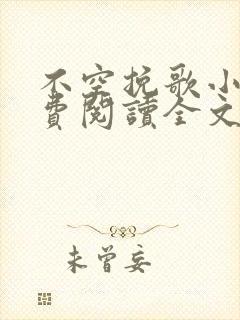 不空挽歌小
費閱讀全文
未曾妄